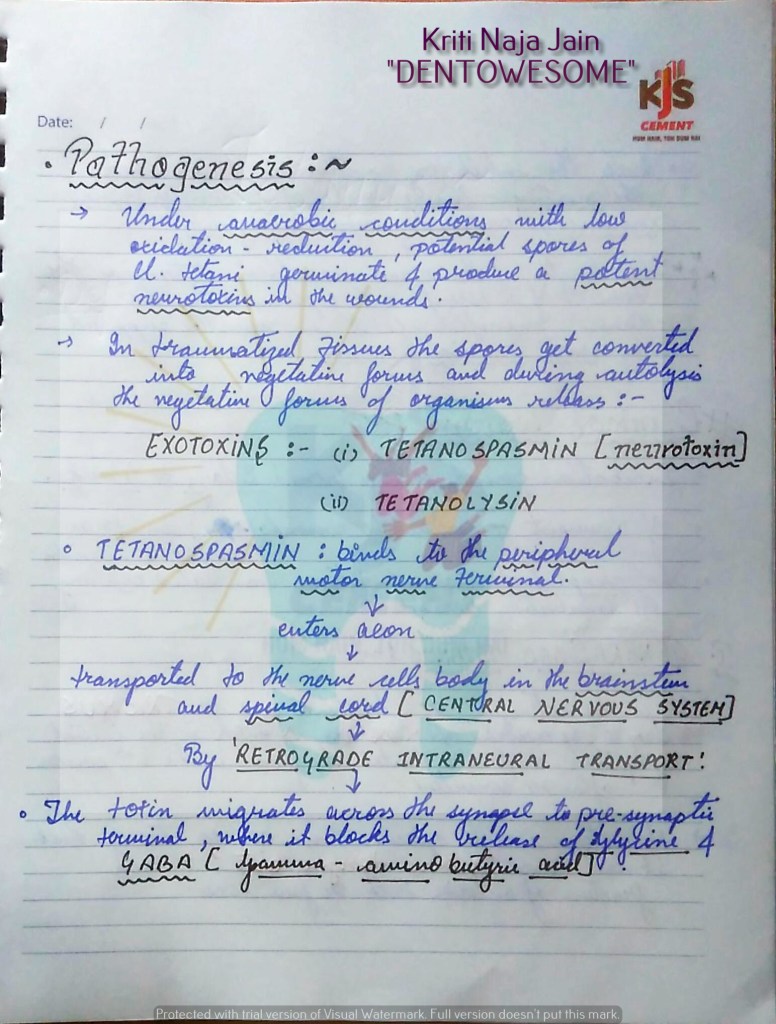 Kriti Naja Jain
"DENTOWESOME"
KJS
CEMENT
Date: / /
• Pathogenesis :~
→ Under anaerobic conditions with low
oxidation - reduction, potential spores of
Cl. tetani germinate & produce a potent
neurotoxins in the wounds.
→ In traumatized tissues the spores get converted
into vegetative forms and during autolysis
the vegetative forms of organisms release :-
EXOTOXINS :- (i) TETANOSPASMIN [neurotoxin]
(ii) TETANOLYSIN
∘ TETANOSPASMIN : binds to the peripheral
motor nerve terminal.
↓
enters axon
↓
transported to the nerve cells body in the brainstem
and spinal cord [CENTRAL NERVOUS SYSTEM]
↓
By 'RETROGRADE INTRANEURAL TRANSPORT'.
↓
∘ The toxin migrates across the synapse to pre-synaptic
terminal, where it blocks the release of glycine &
GABA [gamma - amino butyric acid].
Protected with trial version of Visual Watermark. Full version doesn't put this mark.